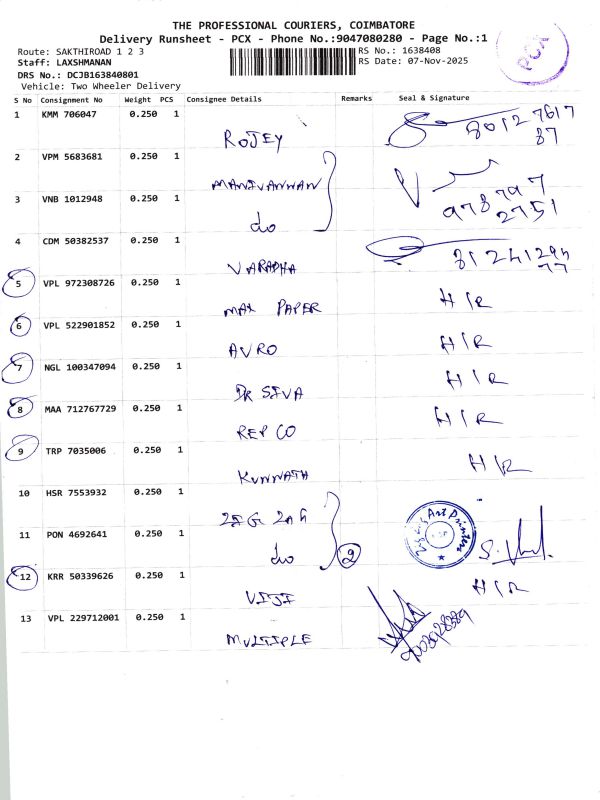 THE PROFESSIONAL COURIERS, COIMBATORE
Delivery Runsheet - PCX - Phone No.:9047080280 - Page No.:1
Route: SAKTHIROAD 1 2 3
RS No.: 1638408
Staff: LAXSHMANAN
RS Date: 07-Nov-2025
DRS No.: DCJB163840801
Vehicle: Two Wheeler Delivery
PCX
S No Consignment No Weight PCS Consignee Details Remarks Seal & Signature
1 KMM 706047 0.250 1 ROJEY 80127617
87
2 VPM 5683681 0.250 1 MANIVANNAN
3 VNB 1012948 0.250 1 do 978797
2751
4 CDM 50382537 0.250 1 VARADHA 81241294
77
5 VPL 972308726 0.250 1 MAX PAPER H/R
6 VPL 522901852 0.250 1 AVRO H/R
7 NGL 100347094 0.250 1 DR SIVA H/R
8 MAA 712767729 0.250 1 REPCO H/R
9 TRP 7035006 0.250 1 KUNNATH H/R
10 HSR 7553932 0.250 1
11 PON 4692641 0.250 1 do 2 Art Printers
12 KRR 50339626 0.250 1 VIJI H/R
13 VPL 229712001 0.250 1 MULTIPLE